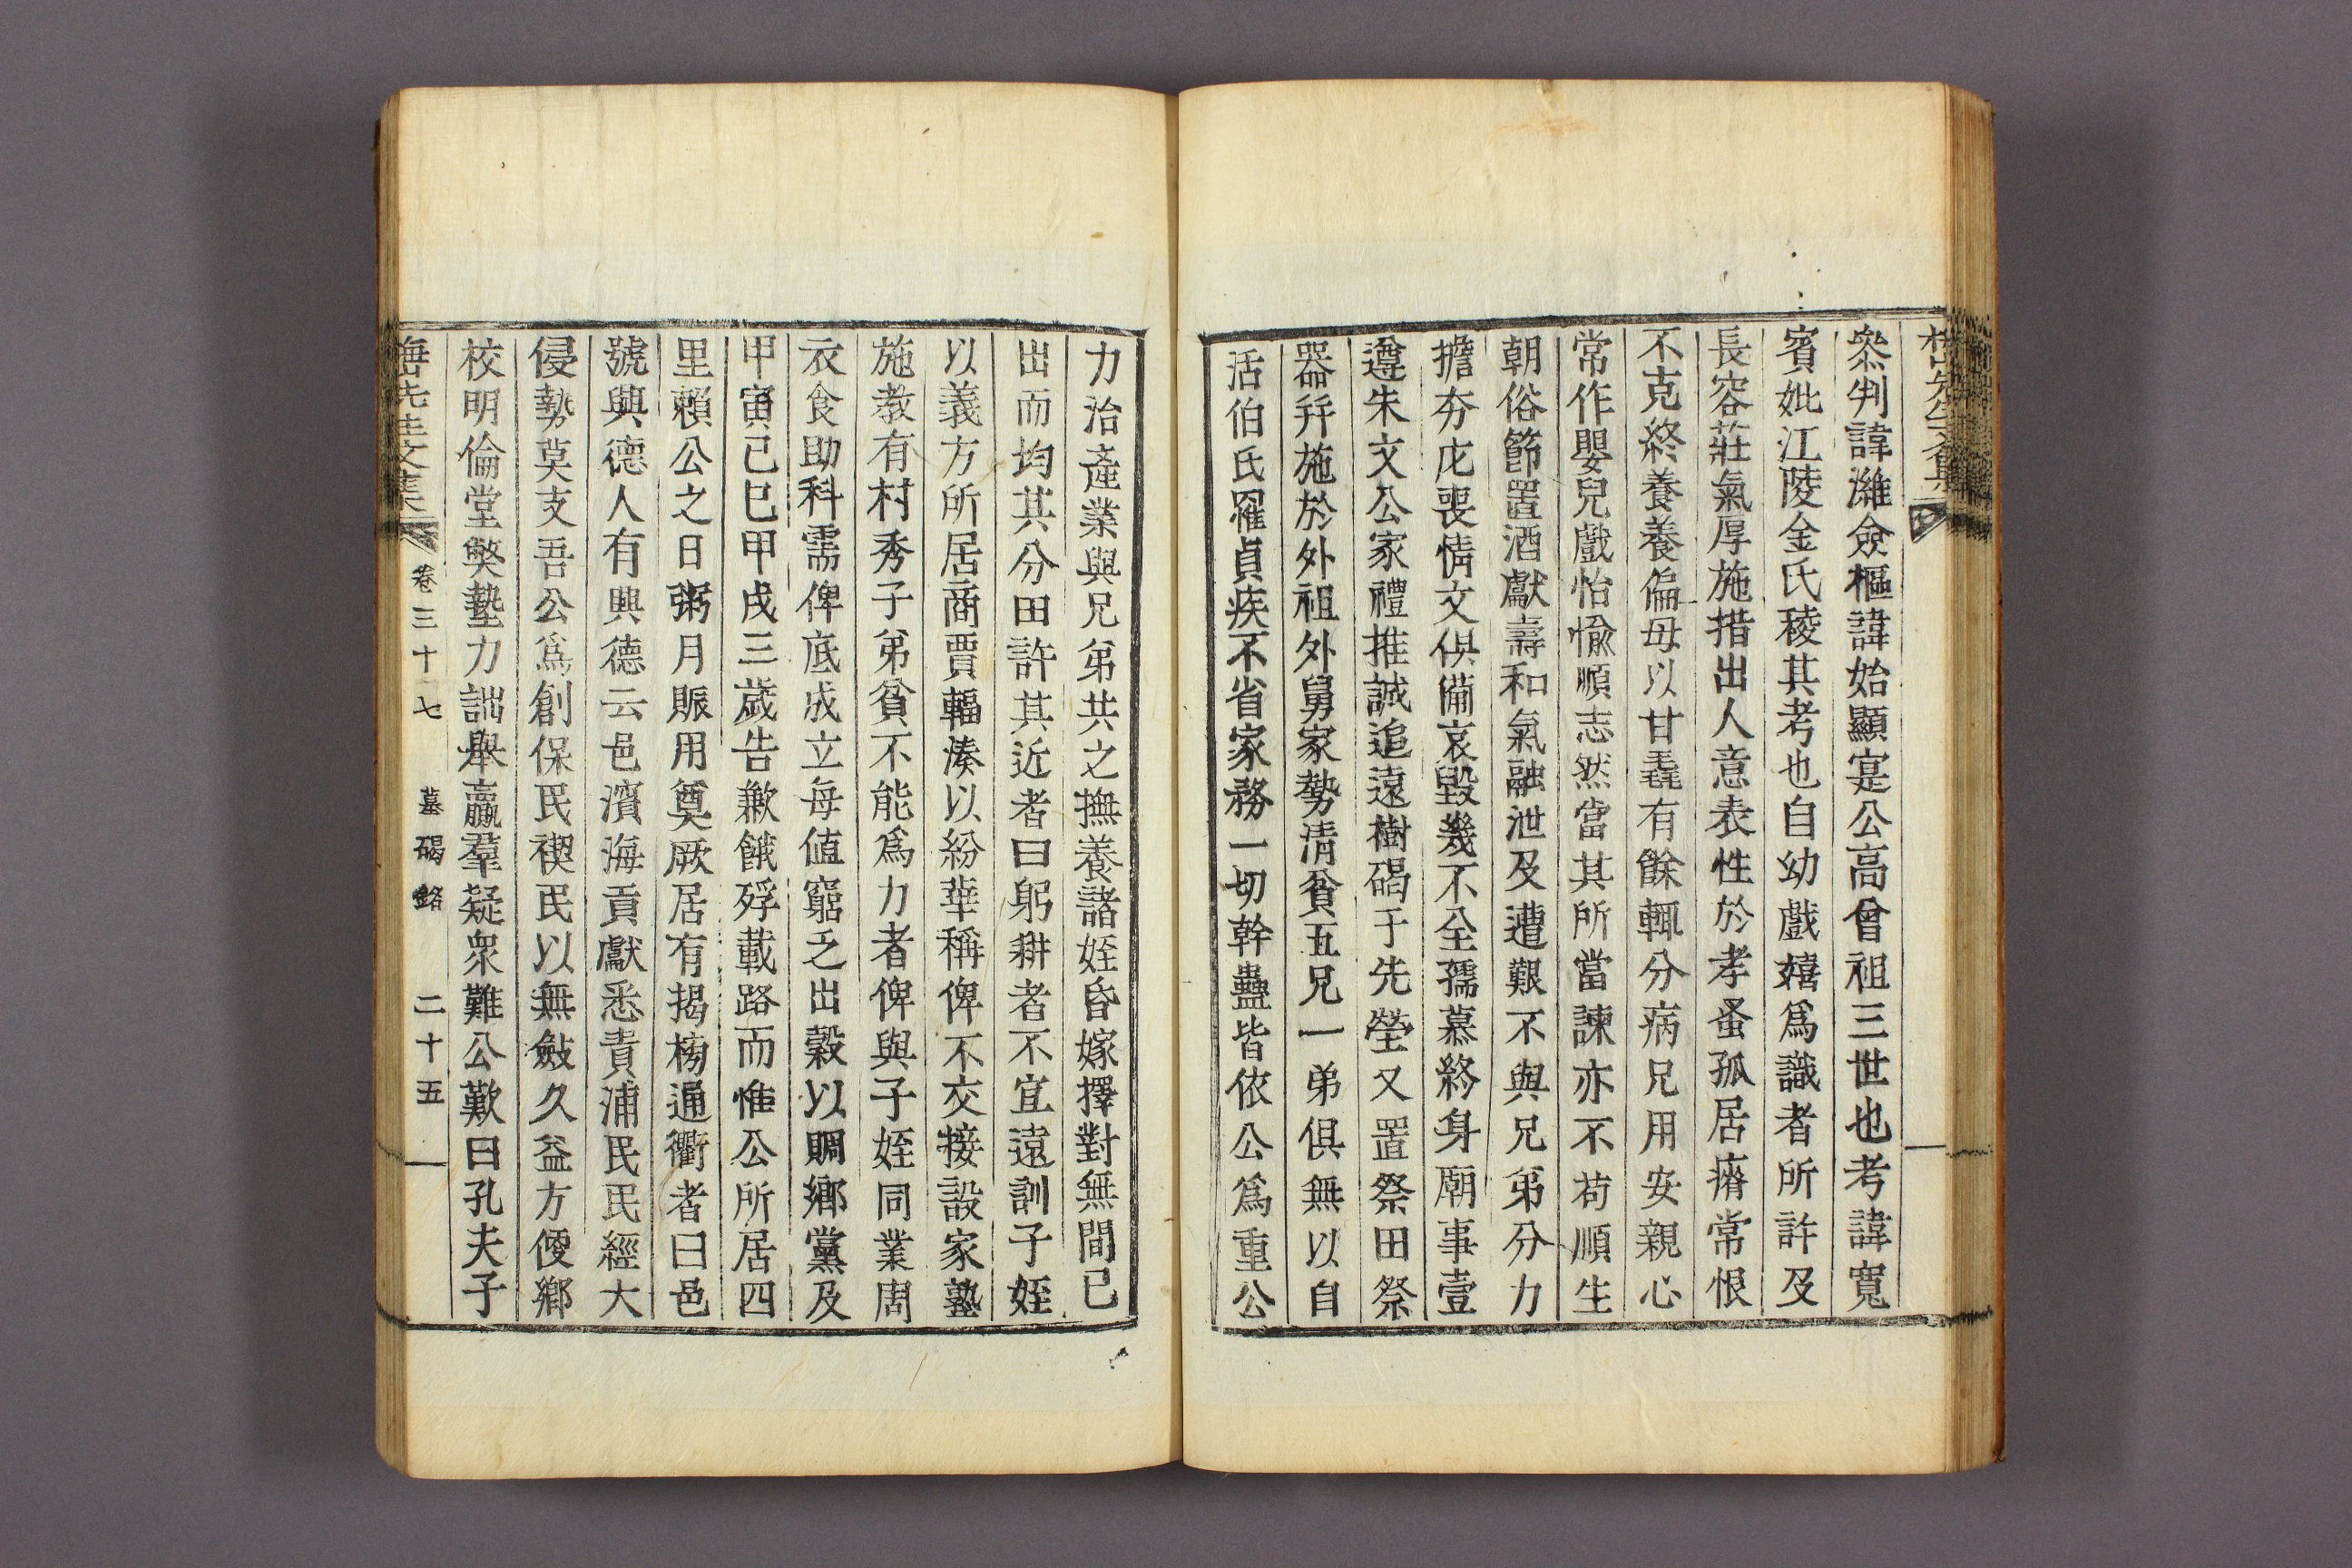 叅判諱濰僉樞諱始顯寔公高曾祖三世也考諱寬
賓妣江陵金氏稜其考也自幼戲嬉爲識者所許及
長容莊氣厚施措出人意表性於孝蚤孤居瘠常恨
不克終養養偏母以甘毳有餘輒分病兄用安親心
常作嬰兒戲怡愉順志然當其所當諫亦不苟順生
朝俗節置酒獻壽和氣融泄及遭艱不與兄弟分力
擔夯庀喪情文俱備哀毁幾不全孺慕終身廟事壹
遵朱文公家禮推誠追遠樹碣于先塋又置祭田祭
器幷施於外祖外舅家勢淸貧五兄一弟俱無以自
活伯氏罹貞疾不省家務一切幹蠱皆依公爲重公
力治產業與兄弟共之撫養諸姪昏嫁擇對無間已
出而均其分田許其近者曰躬耕者不宜遠訓子姪
以義方所居商賈輻湊以紛華稱俾不交接設家塾
施敎有村秀子弟貧不能爲力者俾與子姪同業周
衣食助科需俾底成立每値窮乏出糓以賙鄕黨及
甲寅己巳甲戌三歲告歉餓殍載路而惟公所居四
里賴公之日粥月賑用奠厥居有揭榜通衢者曰邑
號興德人有興德云邑濱海貢獻悉責浦民民經大
侵勢莫支吾公爲創保民禊民以無斁久益方便鄕
校明倫堂獘墊力詘擧贏羣疑衆難公歎曰孔夫子
先生文集 卷三十七 墓碣銘 二十五